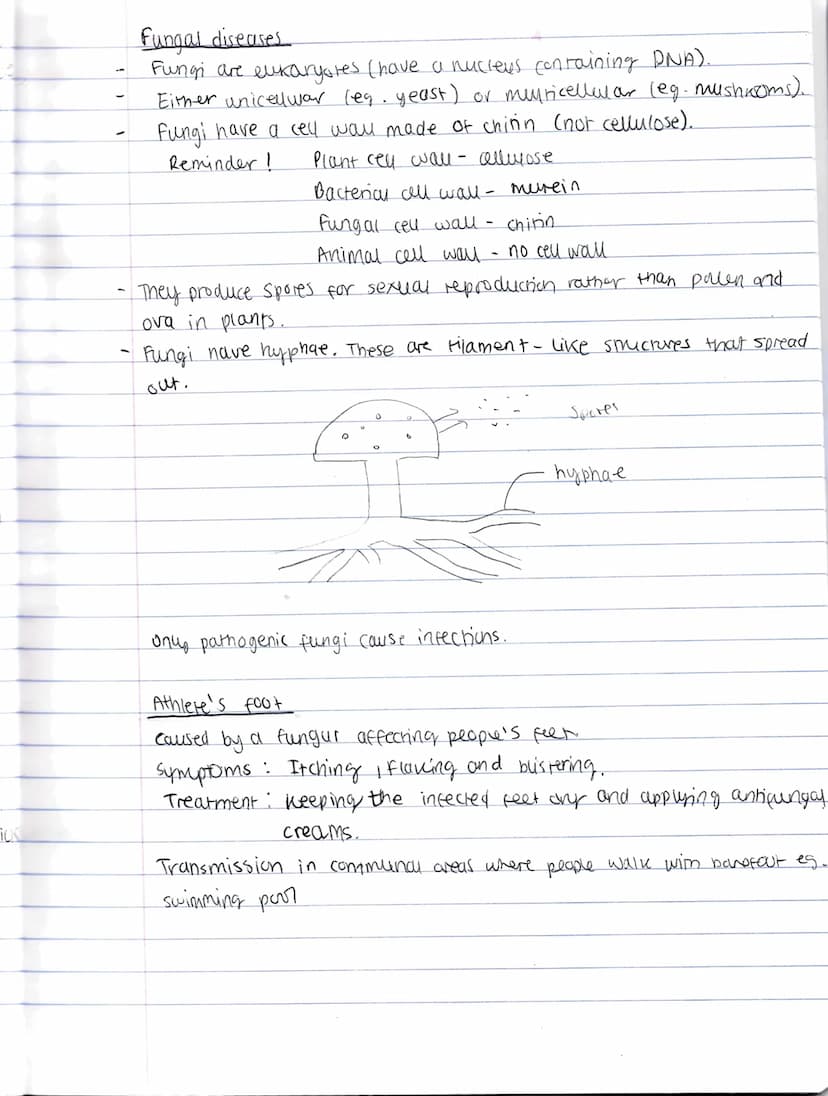 Fungal diseases
- Fungi are eukaryotes (have a nucleus containing DNA).
- Either unicellular (eg. yeast) or multicellular (eg. mushrooms).
- Fungi have a cell wall made of chitin (not cellulose).
Reminder! Plant cell wall - cellulose
Bacterial cell wall - murein
Fungal cell wall - chitin
Animal cell wall - no cell wall
- They produce spores for sexual reproduction rather than pollen and
ova in plants.
- Fungi have hyphae. These are filament-like structures that spread
out.
spores
hyphae
Only pathogenic fungi cause infections.
Athlete's foot
Caused by a fungus affecting people's feet
Symptoms : Itching, flaking and blistering.
Treatment : Keeping the infected feet dry and applying antifungal
creams.
Transmission in communal areas where people walk with barefoot eg.
swimming pool